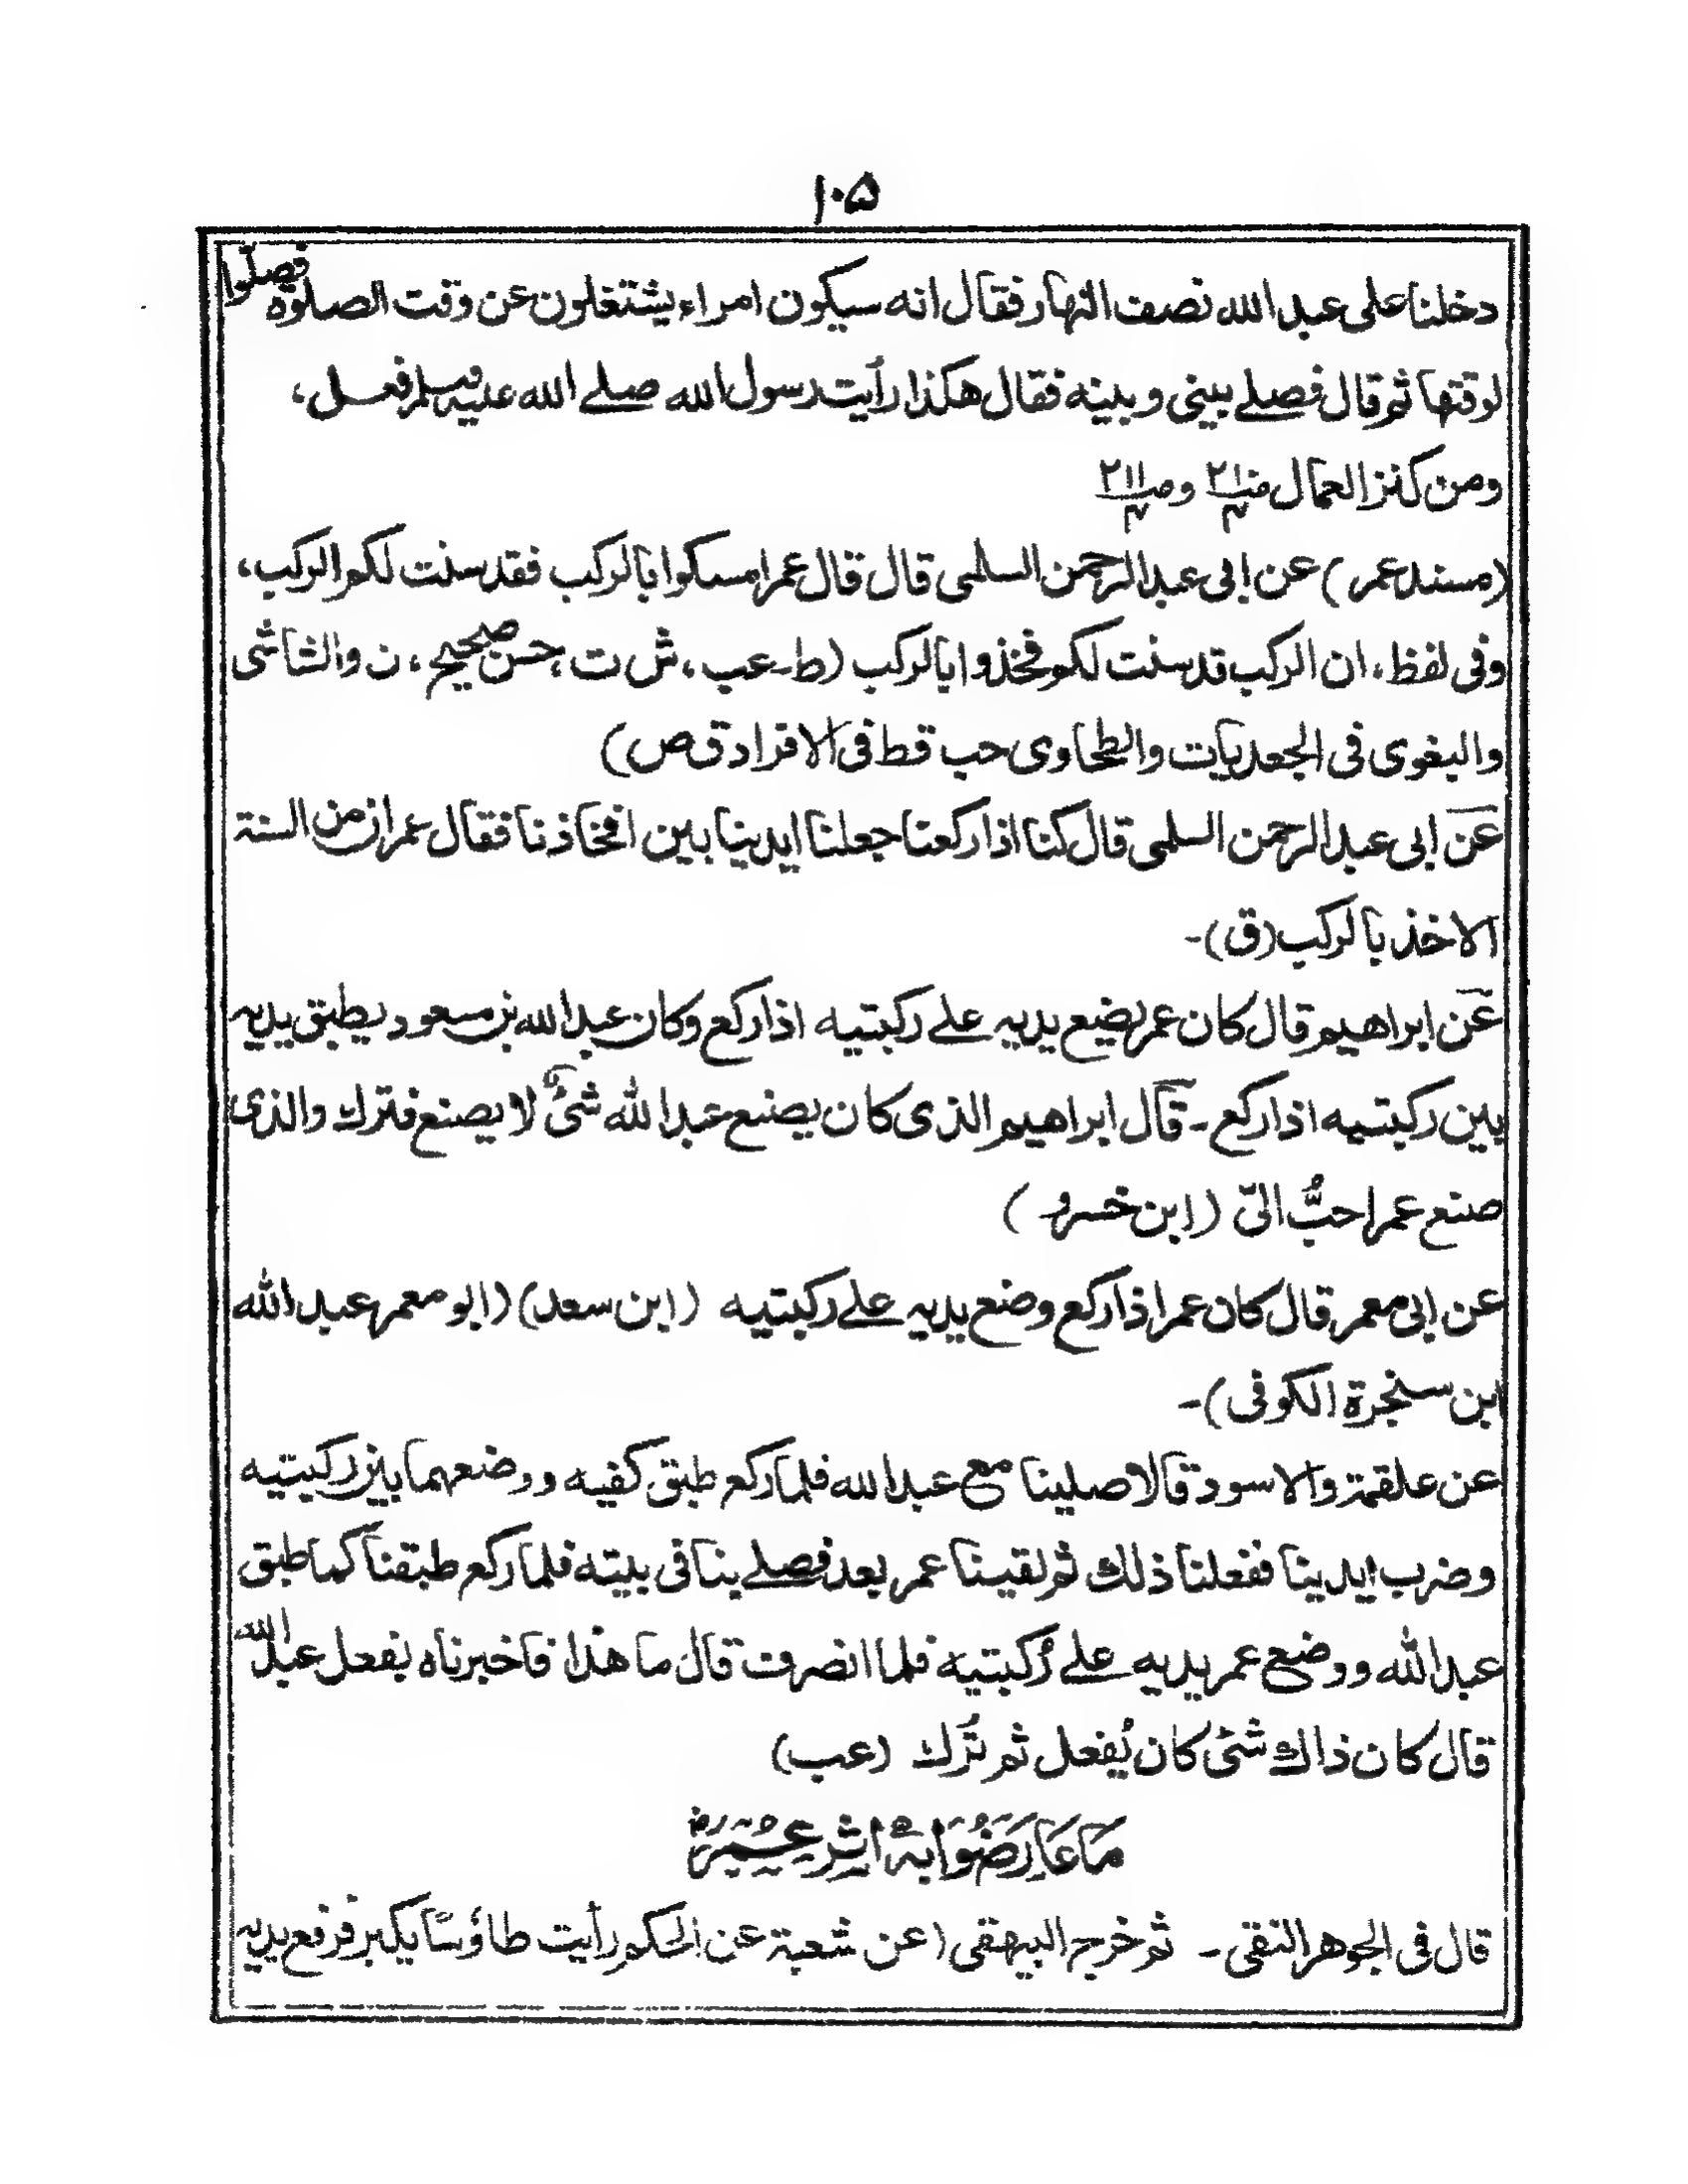 ۱۰۵
دخلنا على عبد الله نصف النهار فقال انه سيكون امراء يشتغلون عن وقت الصلوة فصلوا
لوقتها ثم قال فصلے بينى وبينه فقال هكذا رأيت رسول الله صلے الله عليه وسلم فعل،
ومن كنز العمال ص۲۱ ۴ و ص۲۱۱ ۴
(مسند عمر) عن ابى عبد الرحمن السلمى قال قال عمر امسكوا بالركب فقد سنت لكم الركب،
وفى لفظ، ان الركب قد سنت لكم فخذوا بالركب (ط- عب، ش ت، حسن صحيح، ن والشاشى
والبغوى فى الجعديات والطحاوى حب قط فى الافراد ق ص)
عن ابى عبد الرحمن السلمى قال كنا اذا ركعنا جعلنا ايدينا بين افخاذنا فقال عمر ان من السنة
الاخذ بالركب (ق)-
عن ابراهيم قال كان عمر يضع يديه علے ركبتيه اذا ركع وكان عبد الله بن مسعود يطبق يديه
بين ركبتيه اذا ركع - قال ابراهيم الذى كان يصنع عبد الله شئ لا يصنع فترك والذى
صنع عمر احبُّ الىّ (ابن خسرو)
عن ابى معمر قال كان عمر اذا ركع وضع يديه علے ركبتيه (ابن سعد) (ابو معمر عبد الله
ابن سنجرة الكوفى)-
عن علقمة والاسود قالا صلينا مع عبد الله فلما ركع طبق كفيه ووضعهما بين ركبتيه
وضرب ايدينا ففعلنا ذلك ثم لقينا عمر بعد فصلے بنا فى بيته فلما ركع طبقنا كما طبق
عبد الله ووضع عمر يديه علے رُكبتيه فلما انصرف قال ما هذا فاخبرناه بفعل عبد الله
قال كان ذاك شئ كان يُفعل ثم تُرك (عب)
مَا عَارَضُوَا بِهٖ اثر عمر رض
قال فى الجوهر النقى - ثم خرج البيهقى (عن شعبة عن الحكم رأيت طاؤسًا يكبر فرفع يديه